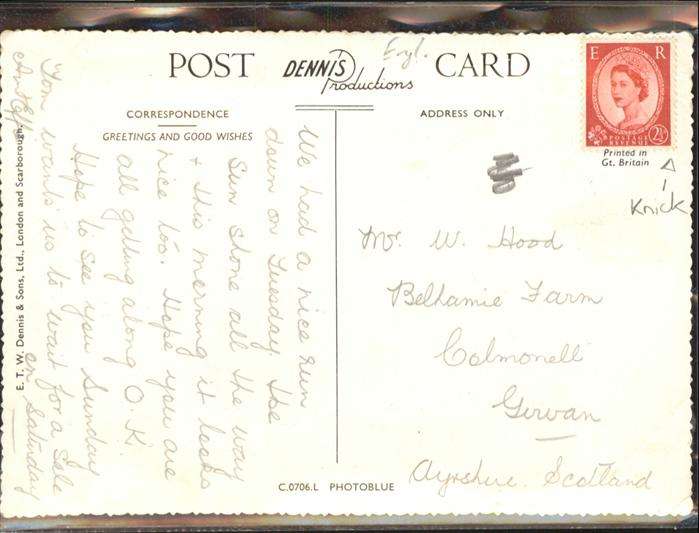 Engl.
POST CARD
DENNIS
Productions
E R
POSTAGE
REVENUE
2½
Printed in
Gt. Britain
Knick
CORRESPONDENCE
GREETINGS AND GOOD WISHES
ADDRESS ONLY
We had a nice run
down on Tuesday. The
Sun shone all the way
+ this morning it looks
nice too. Hope you are
all getting along O.K.
Hope to see you Sunday
Tom wants us to wait for a Sale
on Saturday
Mr. W. Hood
Bellamie Farm
Colmonell
Girvan
Ayrshire. Scotland
E. T. W. Dennis & Sons, Ltd., London and Scarborough.
C.0706.L PHOTOBLUE